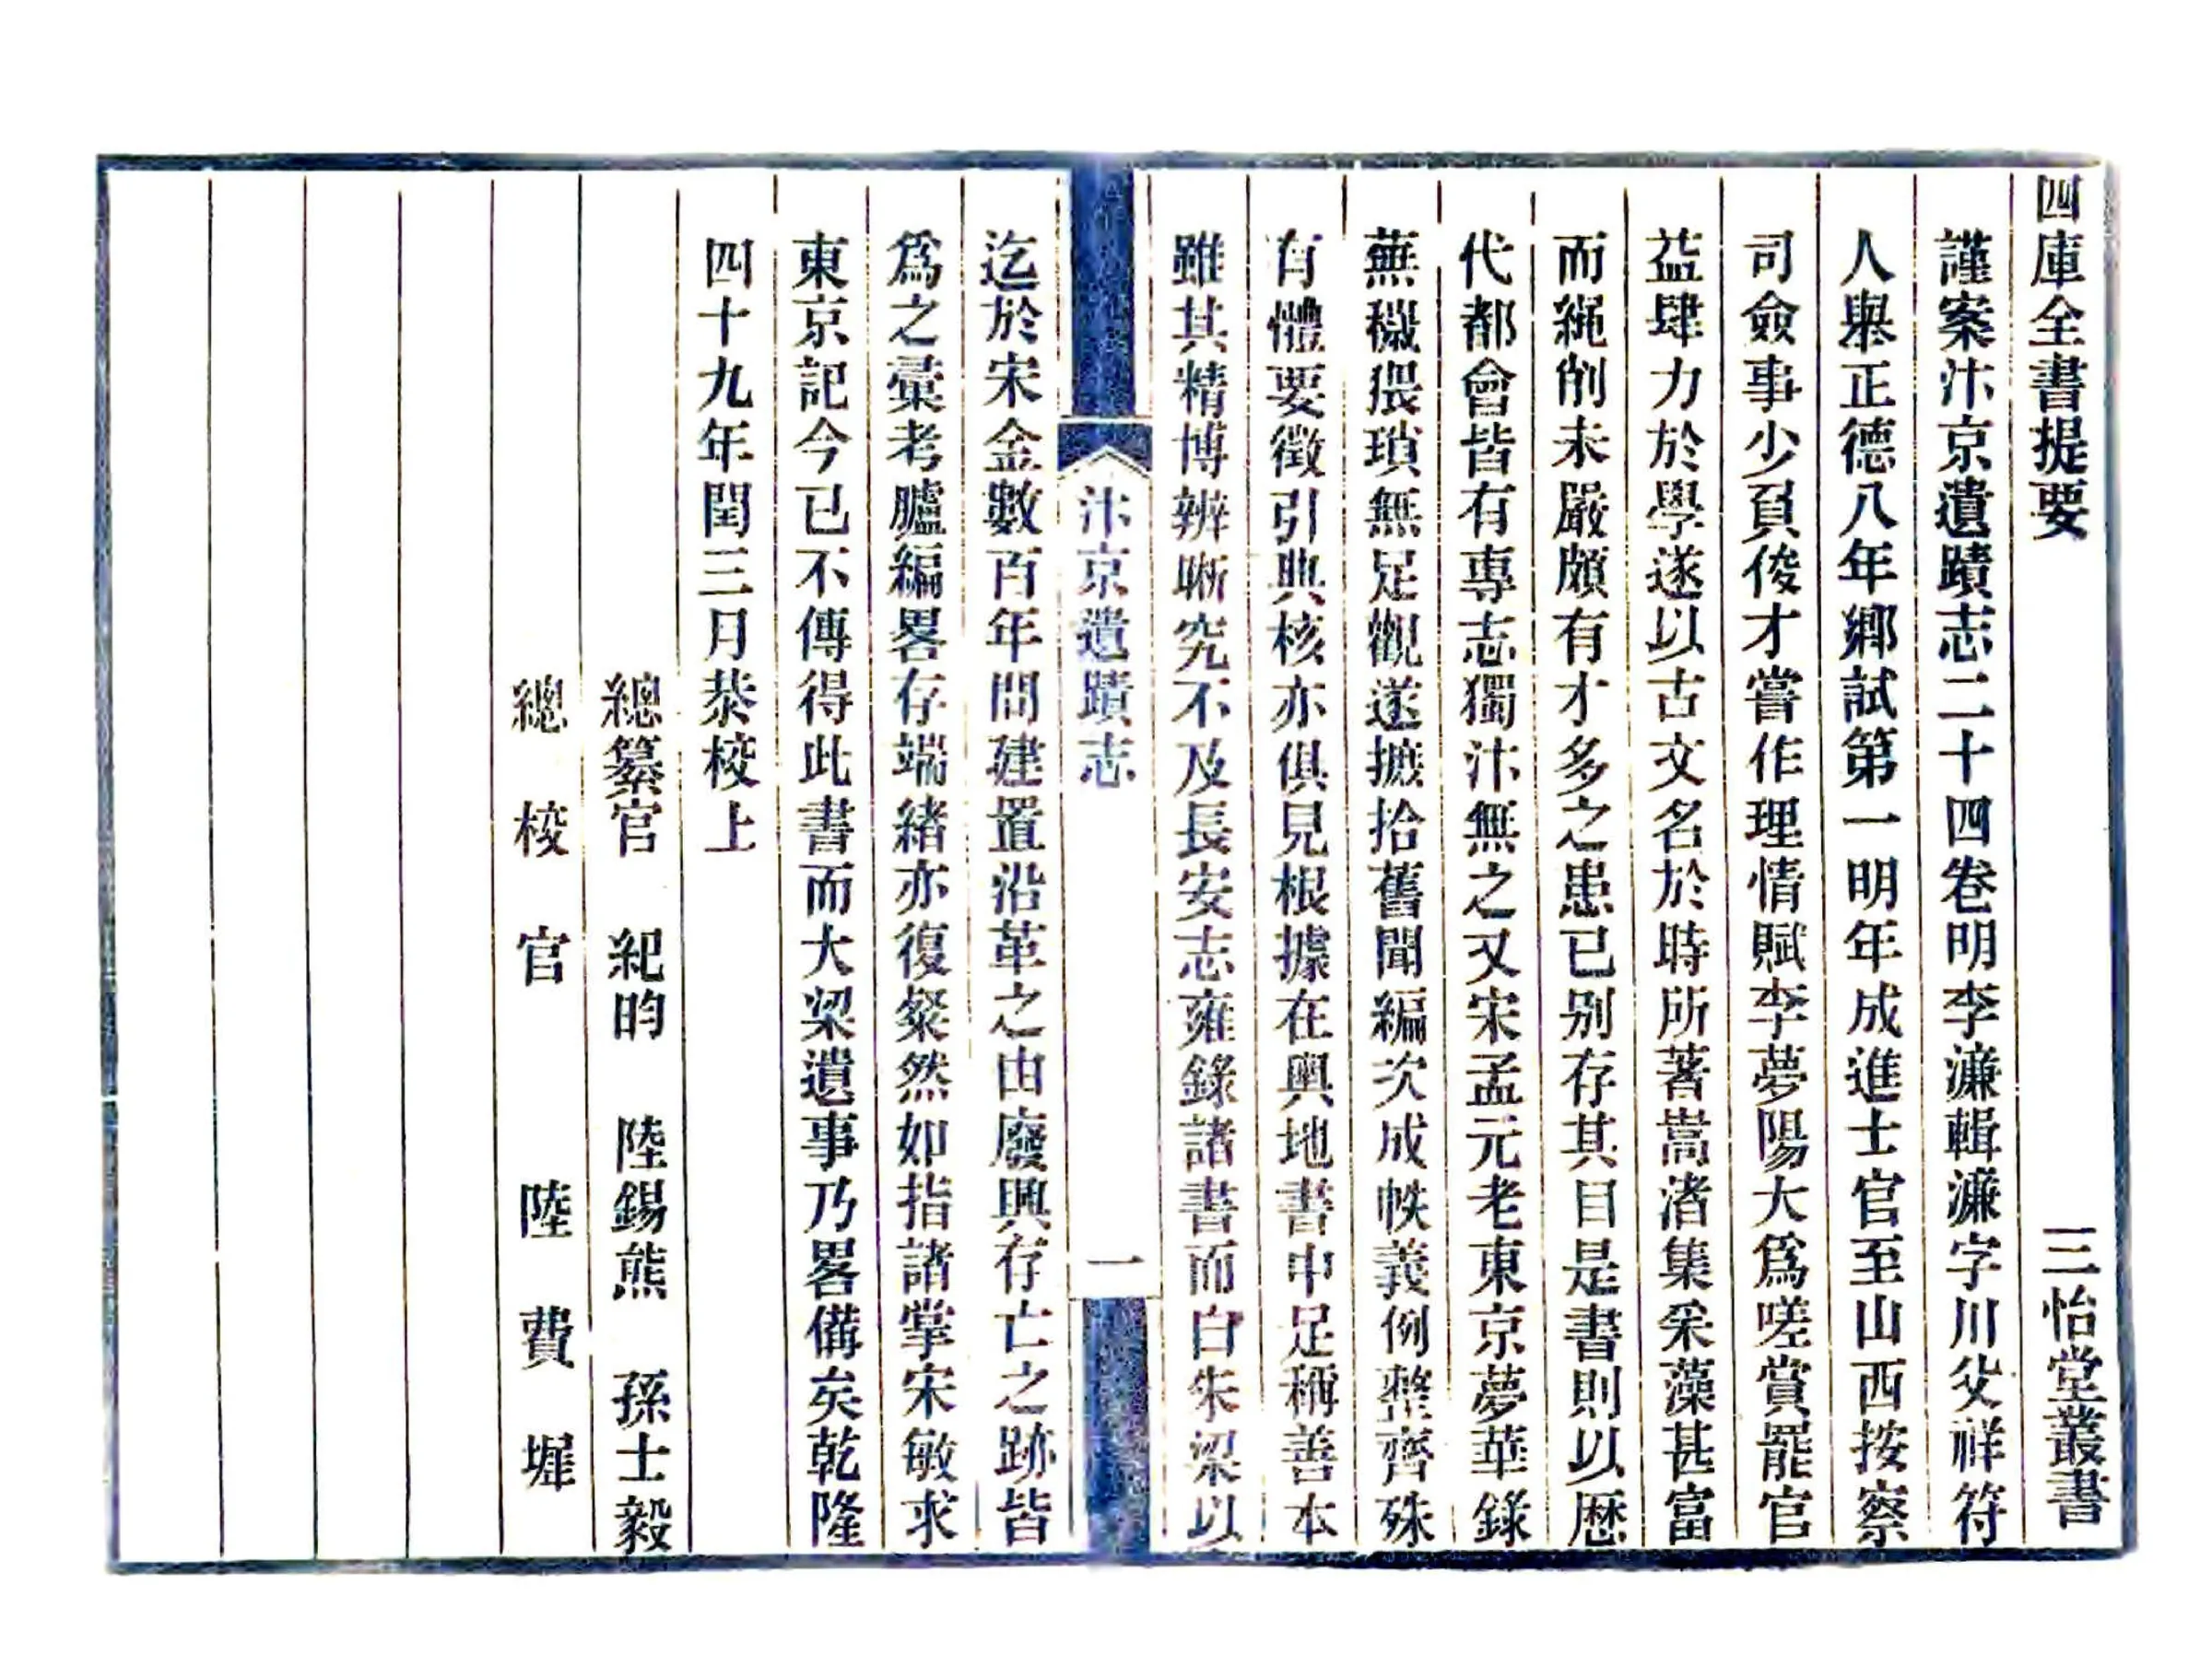 四庫全書提要　三怡堂叢書
謹案汴京遺蹟志二十四卷明李濂輯濂字川父祥符
人舉正德八年鄉試第一明年成進士官至山西按察
司僉事少負俊才嘗作理情賦李夢陽大爲嗟賞罷官
益肆力於學遂以古文名於時所著嵩渚集采藻甚富
而繩削未嚴頗有才多之患已别存其目是書則以歷
代都會皆有專志獨汴無之又宋孟元老東京夢華錄
蕪穢猥瑣無足觀遂摭拾舊聞編次成帙義例整齊殊
有體要徵引典核亦俱見根據在輿地書中足稱善本
雖其精博辨晰究不及長安志雍錄諸書而自朱梁以
汴京遺蹟志　一
迄於宋金數百年間建置沿革之由廢興存亡之跡皆
爲之彙考臚編畧存端緒亦復粲然如指諸掌宋敏求
東京記今已不傳得此書而大梁遺事乃畧備矣乾隆
四十九年閏三月恭校上
總纂官　紀昀　陸錫熊　孫士毅
總　校　官　　陸　費　墀